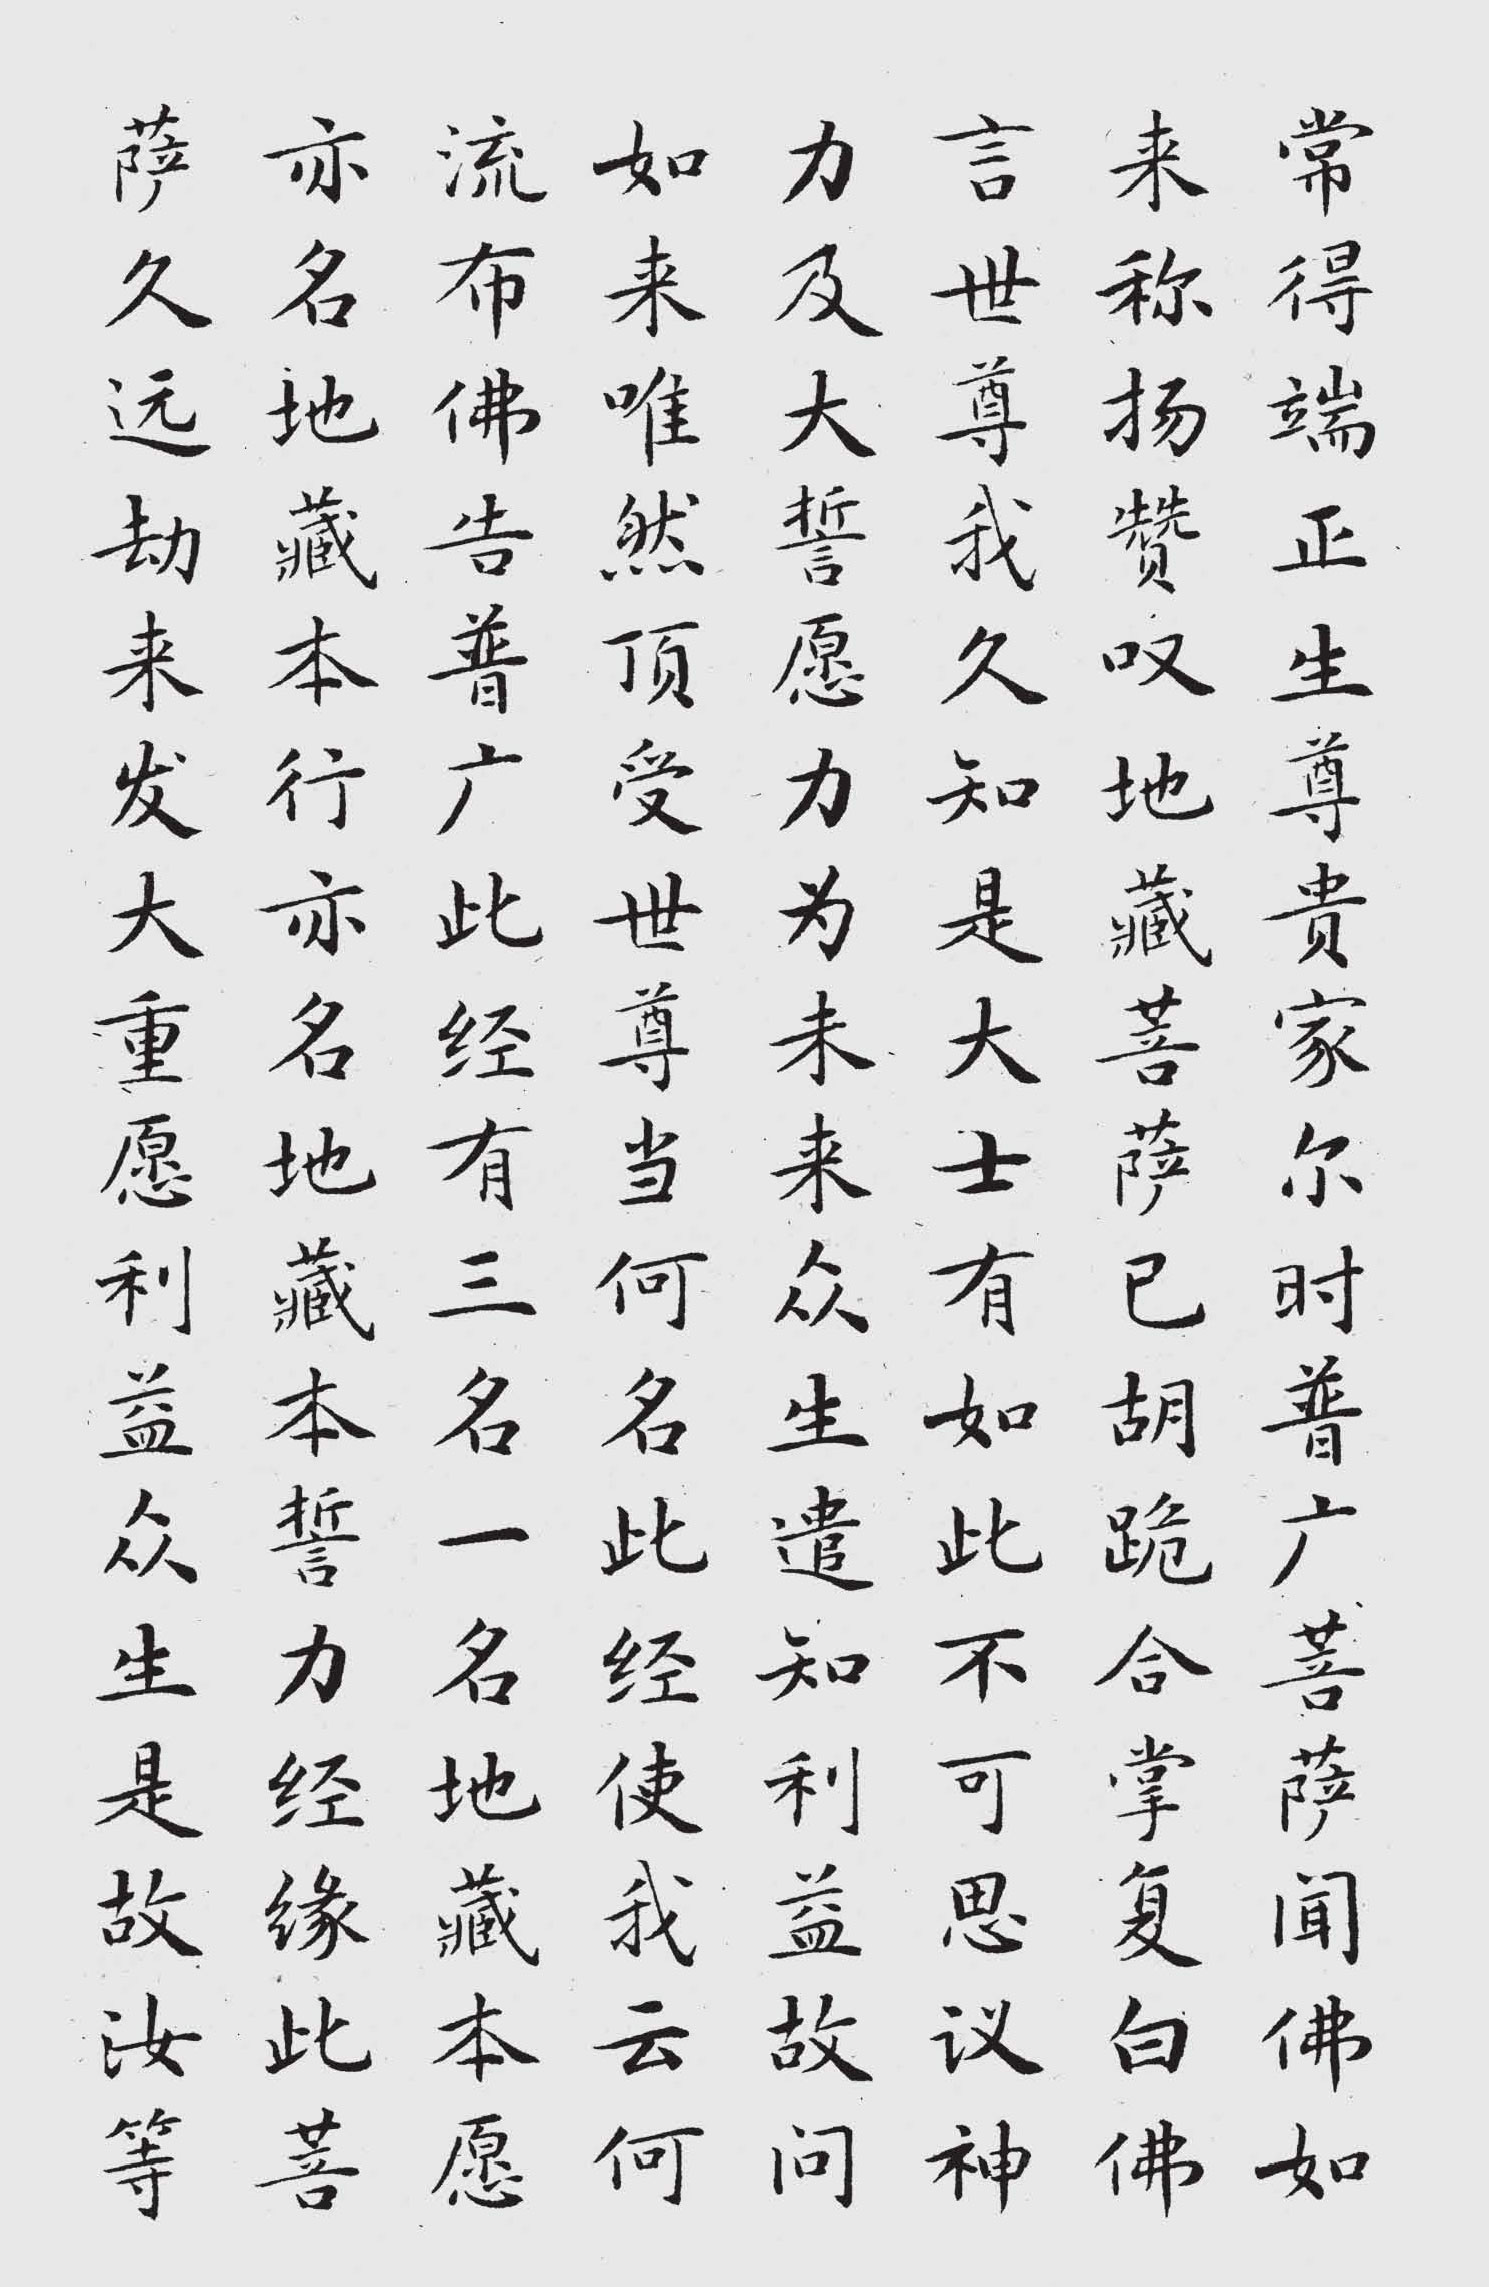 常得端正生尊贵家尔时普广菩萨闻佛如
来称扬赞叹地藏菩萨已胡跪合掌复白佛
言世尊我久知是大士有如此不可思议神
力及大誓愿力为未来众生遣知利益故问
如来唯然顶受世尊当何名此经使我云何
流布佛告普广此经有三名一名地藏本愿
亦名地藏本行亦名地藏本誓力经缘此菩
萨久远劫来发大重愿利益众生是故汝等